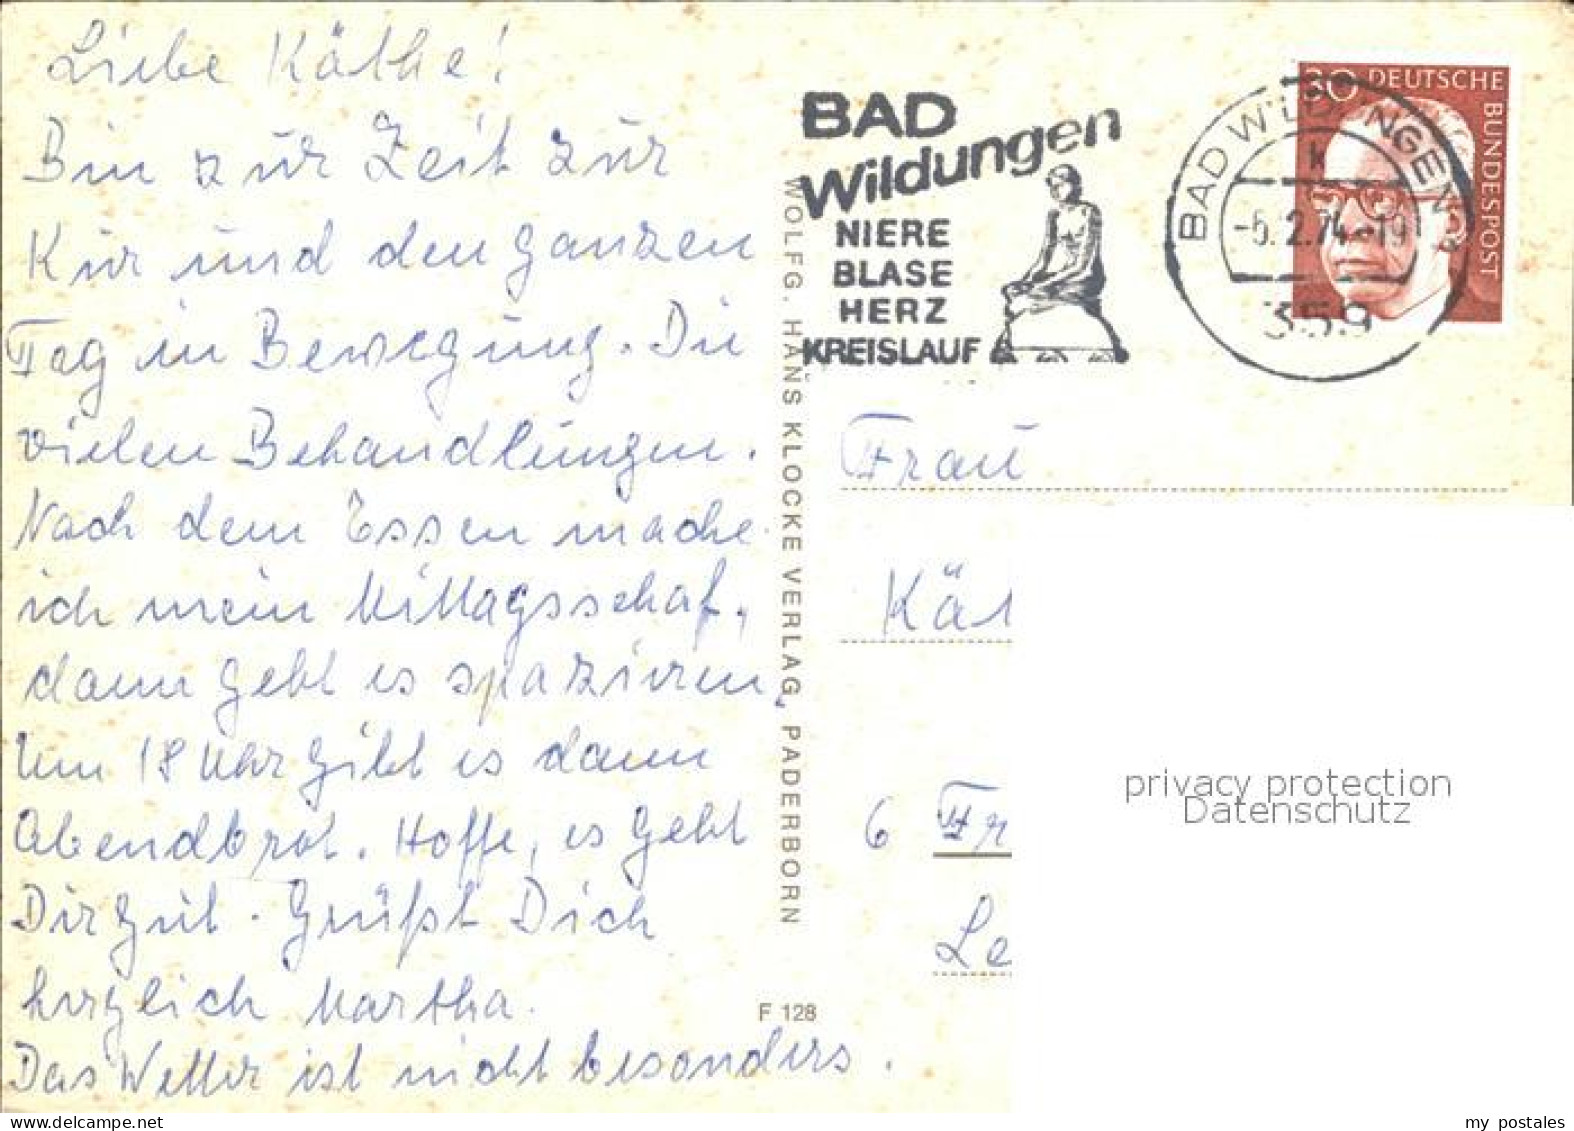 Liebe Käthe!
Bin zur Zeit zur
Kur und den ganzen
Tag in Bewegung. Die
vielen Behandlungen.
Nach dem Essen mache
ich mein Mittagsschaf,
dann geht es spaziren,
Um 18 Uhr gibt es dann
Abendbrot. Hoffe, es geht
Dir gut. Grüßt Dich
herzlich Martha.
Das Wetter ist nicht besonders.
WOLFG. HANS KLOCKE VERLAG, PADERBORN
F 128
BAD
Wildungen
NIERE
BLASE
HERZ
KREISLAUF
BAD WILDUNGEN
k
2.74-19
359
30 DEUTSCHE
BUNDESPOST
Frau
Kät
6 Fr
Le
privacy protection
Datenschutz
my postales
www.delcampe.net